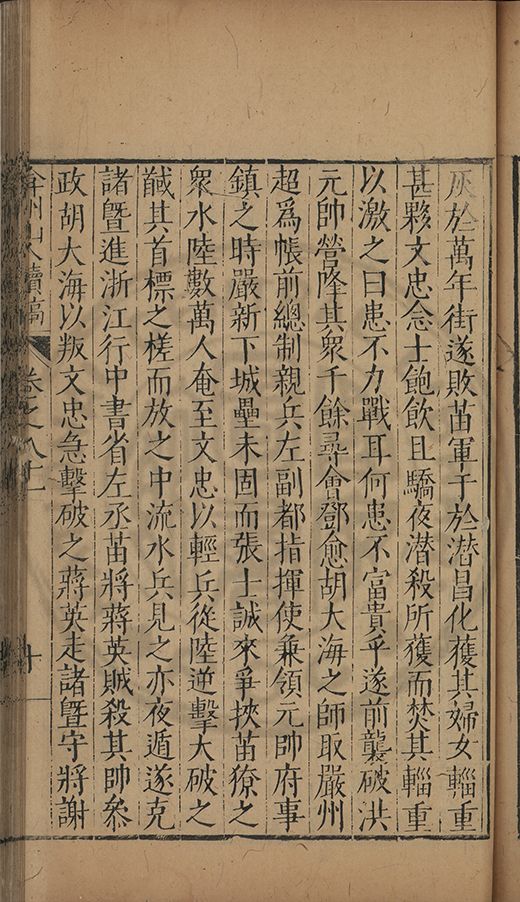 灰於萬年街遂敗苗軍于於潛昌化獲其婦女輜重
甚夥文忠念士飽飲且驕夜潛殺所獲而焚其輜重
以激之曰患不力戰耳何患不富貴乎遂前襲破洪
元帥營降其衆千餘尋會鄧愈胡大海之師取嚴州
超爲帳前總制親兵左副都指揮使兼領元帥府事
鎮之時嚴新下城壘未固而張士誠來爭挾苗獠之
衆水陸數萬人奄至文忠以輕兵從陸逆擊大破之
馘其首標之槎而放之中流水兵見之亦夜遁遂克
諸曁進浙江行中書省左丞苗將蔣英賊殺其帥叅
政胡大海以叛文忠急擊破之蔣英走諸曁守將謝
弇州山人續稿 卷之八十一 十